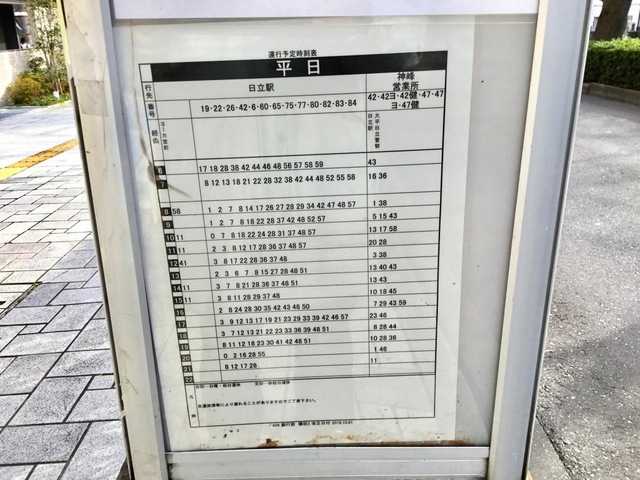 運行予定時刻表
平日
行先 日立駅 神峰営業所
番号 19・22・26・42・6・60・65・75・77・80・82・83・84 42・42ヨ・42健・47・47ヨ・47健
経由 ヨーカ堂前 大平日立警察 日立駅
6 17 18 28 38 42 44 46 48 56 57 58 59 43
7 8 12 13 18 21 22 28 32 38 42 44 48 52 55 58 16 36
8 58 1 2 7 8 14 17 26 27 28 29 34 42 47 48 57 1 38
9 1 2 7 8 18 22 28 37 42 48 52 57 5 15 43
10 11 0 7 8 18 22 24 28 31 37 48 57 13 17 58
11 11 2 3 8 12 17 28 36 37 48 57 20 28
12 41 3 8 17 28 36 37 48 3 38
13 2 3 6 7 8 15 27 28 48 51 13 40 43
14 11 3 7 8 21 28 36 37 48 51 13 43
15 11 3 8 11 28 29 37 48 10 18 45
16 2 8 24 28 30 35 42 43 48 50 7 29 43 59
17 3 9 12 13 17 19 21 23 29 33 39 42 46 57 23 46
18 3 7 12 13 21 22 23 33 36 39 48 51 8 28 44
19 8 11 12 18 23 30 41 42 48 51 10 28 36
20 0 2 16 28 55 1 46
21 8 12 17 28 11
22
交通渋滞等により遅れることがありますのでご了承下さい。